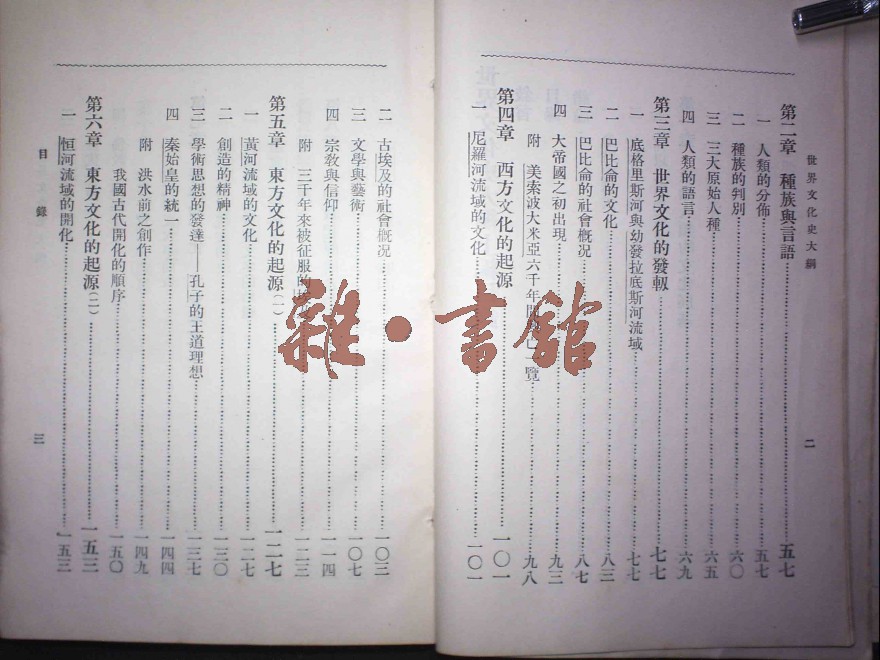 世界文化史大綱
二
第二章 種族與言語……五七
一 人類的分佈……五七
二 種族的判別……六〇
三 三大原始人種……六五
四 人類的語言……六九
第三章 世界文化的發軔……七七
一 底格里斯河與幼發拉底斯河流域……七七
二 巴比侖的文化……八三
三 巴比侖的社會概況……八七
四 大帝國之初出現……九三
附 美索波大米亞六千年間 一覽……九八
第四章 西方文化的起源……一〇一
一 尼羅河流域的文化……一〇一
二 古埃及的社會概況……一〇三
三 文學與藝術……一〇七
四 宗教與信仰……一一四
附 三千年來被征服的……一二三
第五章 東方文化的起源(一)……一二七
一 黃河流域的文化……一二七
二 創造的精神……一三〇
三 學術思想的發達——孔子的王道理想……一三七
四 秦始皇的統一……一四四
附 洪水前之創作……一四九
我國古代開化的順序……一五〇
第六章 東方文化的起源(二)……一五三
一 恒河流域的開化……一五三
目錄
三
雜·書館